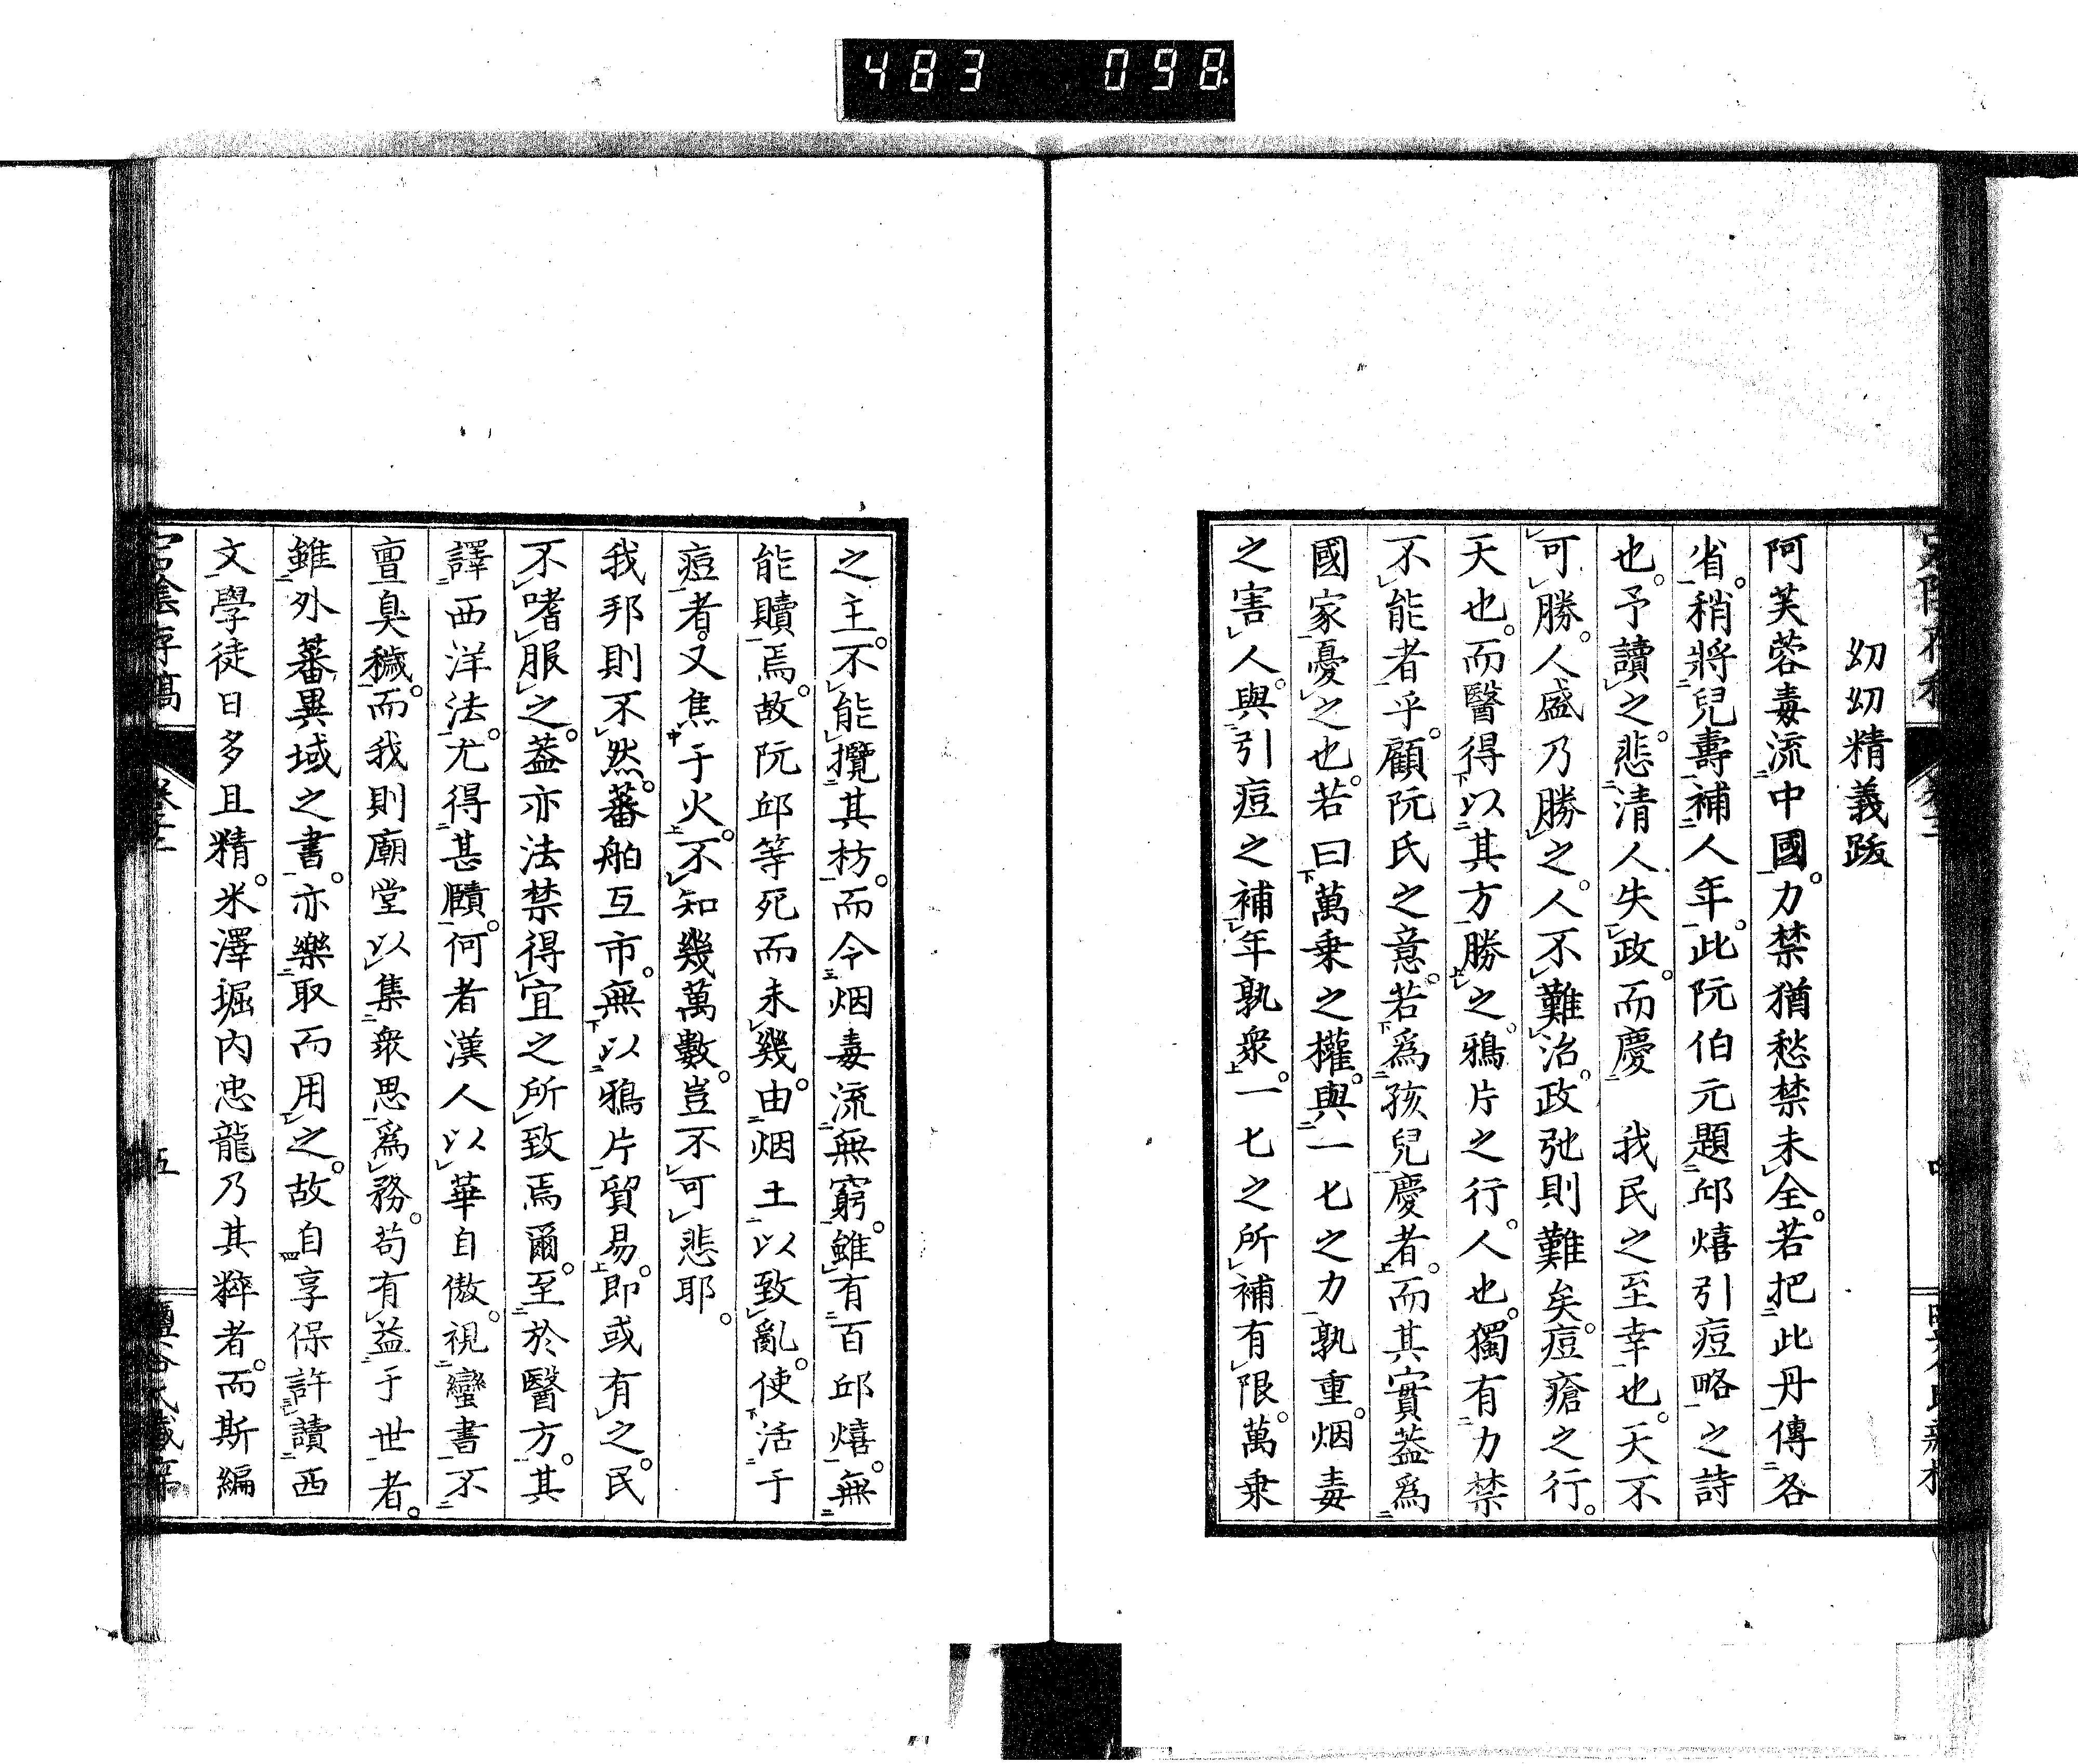 483 098
幼幼精義跋
阿芙蓉毒流中國。力禁猶愁禁未全。若把此丹傳各
省。稍將兒壽補人年。此阮伯元題邱熺引痘略之詩
也。予讀之悲。清人失政。而慶 我民之至幸也。天不
可勝。人盛乃勝之。人不難治。政弛則難矣。痘瘡之行。
天也。而醫得以其方勝之。鴉片之行。人也。獨有力禁
不能者乎。顧阮氏之意。若爲孩兒慶者。而其實葢爲
國家憂之也。若曰萬乗之權。與一七之力孰重。烟毒
之害人。與引痘之補年孰衆。一七之所補有限。萬乗
之主。不能攬其枋。而今烟毒流無窮。雖有百邱熺。無
能贖焉。故阮邱等死而未幾。由烟土以致亂。使活于
痘者。又焦于火。不知幾萬數。豈不可悲耶。
我邦則不然。蕃舶互市。無以鴉片貿易。即或有之。民
不嗜服之。葢亦法禁得宜之所致焉爾。至於醫方。其
譯西洋法。尤得甚賾。何者漢人以華自傲。視蠻書不
亶臭穢。而我則廟堂以集衆思爲務。苟有益于世者。
雖外蕃異域之書。亦樂取而用之。故自享保許讀西
文。學徒日多且精。米澤堀内忠龍乃其粹者。而斯編
宕陰存稿
卷三
五